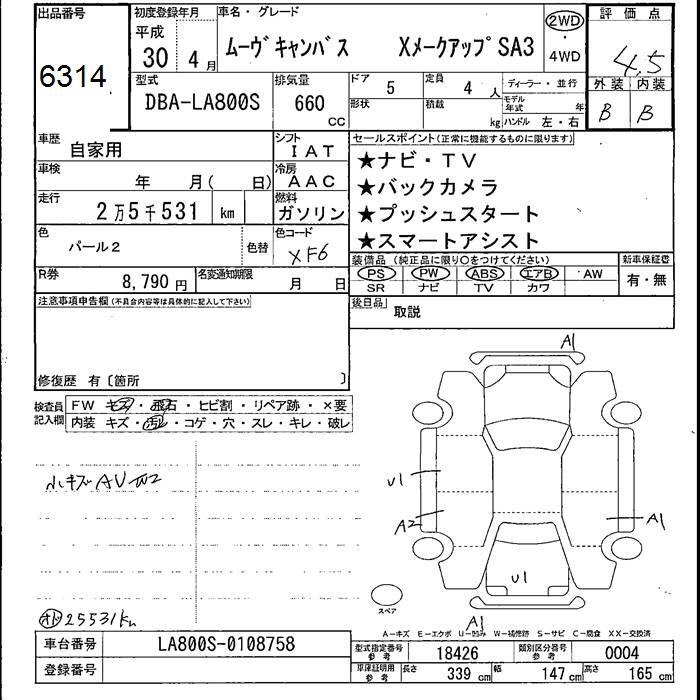 出品番号
6314
初度登録年月
平成
30年 4月
車名・グレード
ムーヴキャンバス Xメークアップ SA3
2WD
・
4WD
評価点
4.5
外装 内装
B B
型式
DBA-LA800S
排気量
660
CC
ドア 5
定員 4人
ディーラー・並行
形状
積載 kg
モデル年式 年
ハンドル 左・右
車歴
自家用
シフト
IAT
車検
年 月( 日)
冷房
AAC
走行
2万5千531 km
燃料
ガソリン
色
パール2
色替
色コード
XF6
R券
8,790円
名変通知期限
月 日
セールスポイント(正常に機能するものに限ります)
★ナビ・TV
★バックカメラ
★プッシュスタート
★スマートアシスト
装備品(純正品に限り○をつけてください)
PS PW ABS エアB AW
SR ナビ TV カワ
新車保証書
有・無
後日品
取説
注意事項申告欄(不具合内容等は具体的に記入して下さい)
修復歴 有〔箇所 〕
検査員記入欄
FW キズ・飛石・ヒビ割・リペア跡・×要
内装 キズ・汚レ・コゲ・穴・スレ・キレ・破レ
小キズAU
25531km
A1
U1
A2
A1
U1
A1
スペア
A-キズ E-エクボ U-凹み W-補修跡 S-サビ C-腐食 XX-交換済
車台番号
LA800S-0108758
登録番号
型式指定番号参考
18426
類別区分番号参考
0004
車庫証明用参考
長さ 339cm
幅 147cm
高さ 165cm